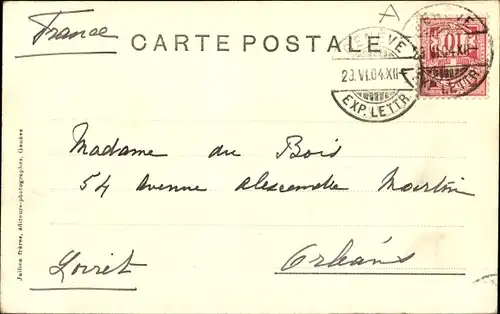 France
CARTE POSTALE
A
GENÈVE
23.VI.04.XII
EXP. LETTR.
10
Madame du Bois
54 Avenue Alexandre Martin
Loiret
Orléans
Jullien frères, éditeurs-photographes, Genève